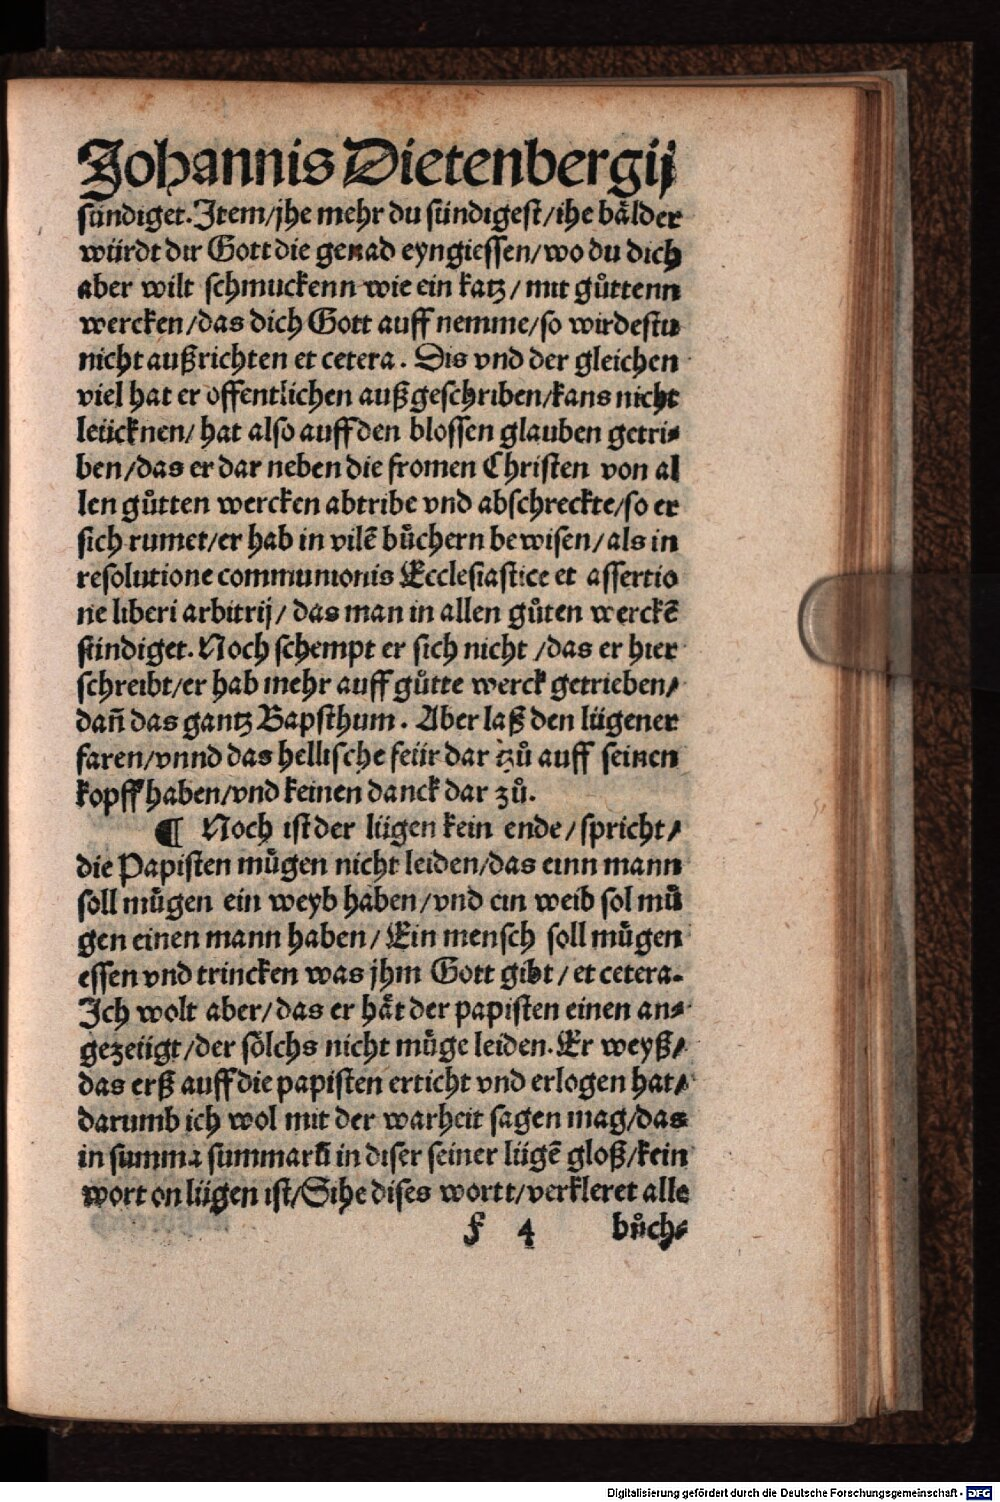 Johannis Dietenbergij
sündiget. Jtem/jhe mehr du sündigest/ihe bålder
würdt dir Gott die genad eyngiessen/wo du dich
aber wilt schmuckenn wie ein katz/mit gůttenn
wercken/das dich Gott auff nemme/so wirdestu
nicht außrichten et cetera. Dis vnd der gleichen
viel hat er offentlichen außgeschriben/kans nicht
leücknen/hat also auff den blossen glauben getri⸗
ben/das er dar neben die fromen Christen von al
len gůtten wercken abtribe vnd abschreckte/so er
sich rumet/er hab in vilẽ bůchern bewisen/als in
resolutione communionis Ecclesiastice et assertio
ne liberi arbitrij/das man in allen gůten werckẽ
sündiget. Noch schempt er sich nicht/das er hier
schreibt/er hab mehr auff gůtte werck getrieben/
dañ das gantz Bapsthum. Aber laß den lügener
faren/vnnd das hellische feür dar zů auff seinen
kopff haben/vnd keinen danck dar zů.
¶ Noch ist der lügen kein ende/spricht/
die Papisten můgen nicht leiden/das einn mann
soll můgen ein weyb haben/vnd ein weib sol mů
gen einen mann haben/Ein mensch soll můgen
essen vnd trincken was jhm Gott gibt/et cetera.
Ich wolt aber/das er håt der papisten einen an⸗
gezeügt/der sölchs nicht můge leiden. Er weyß/
das erß auff die papisten erticht vnd erlogen hat/
darumb ich wol mit der warheit sagen mag/das
in summa summarũ in diser seiner lügẽ gloß/kein
wort on lügen ist/Sihe dises wortt/verkleret alle
f 4 bůch⸗
Digitalisierung gefördert durch die Deutsche Forschungsgemeinschaft - DFG